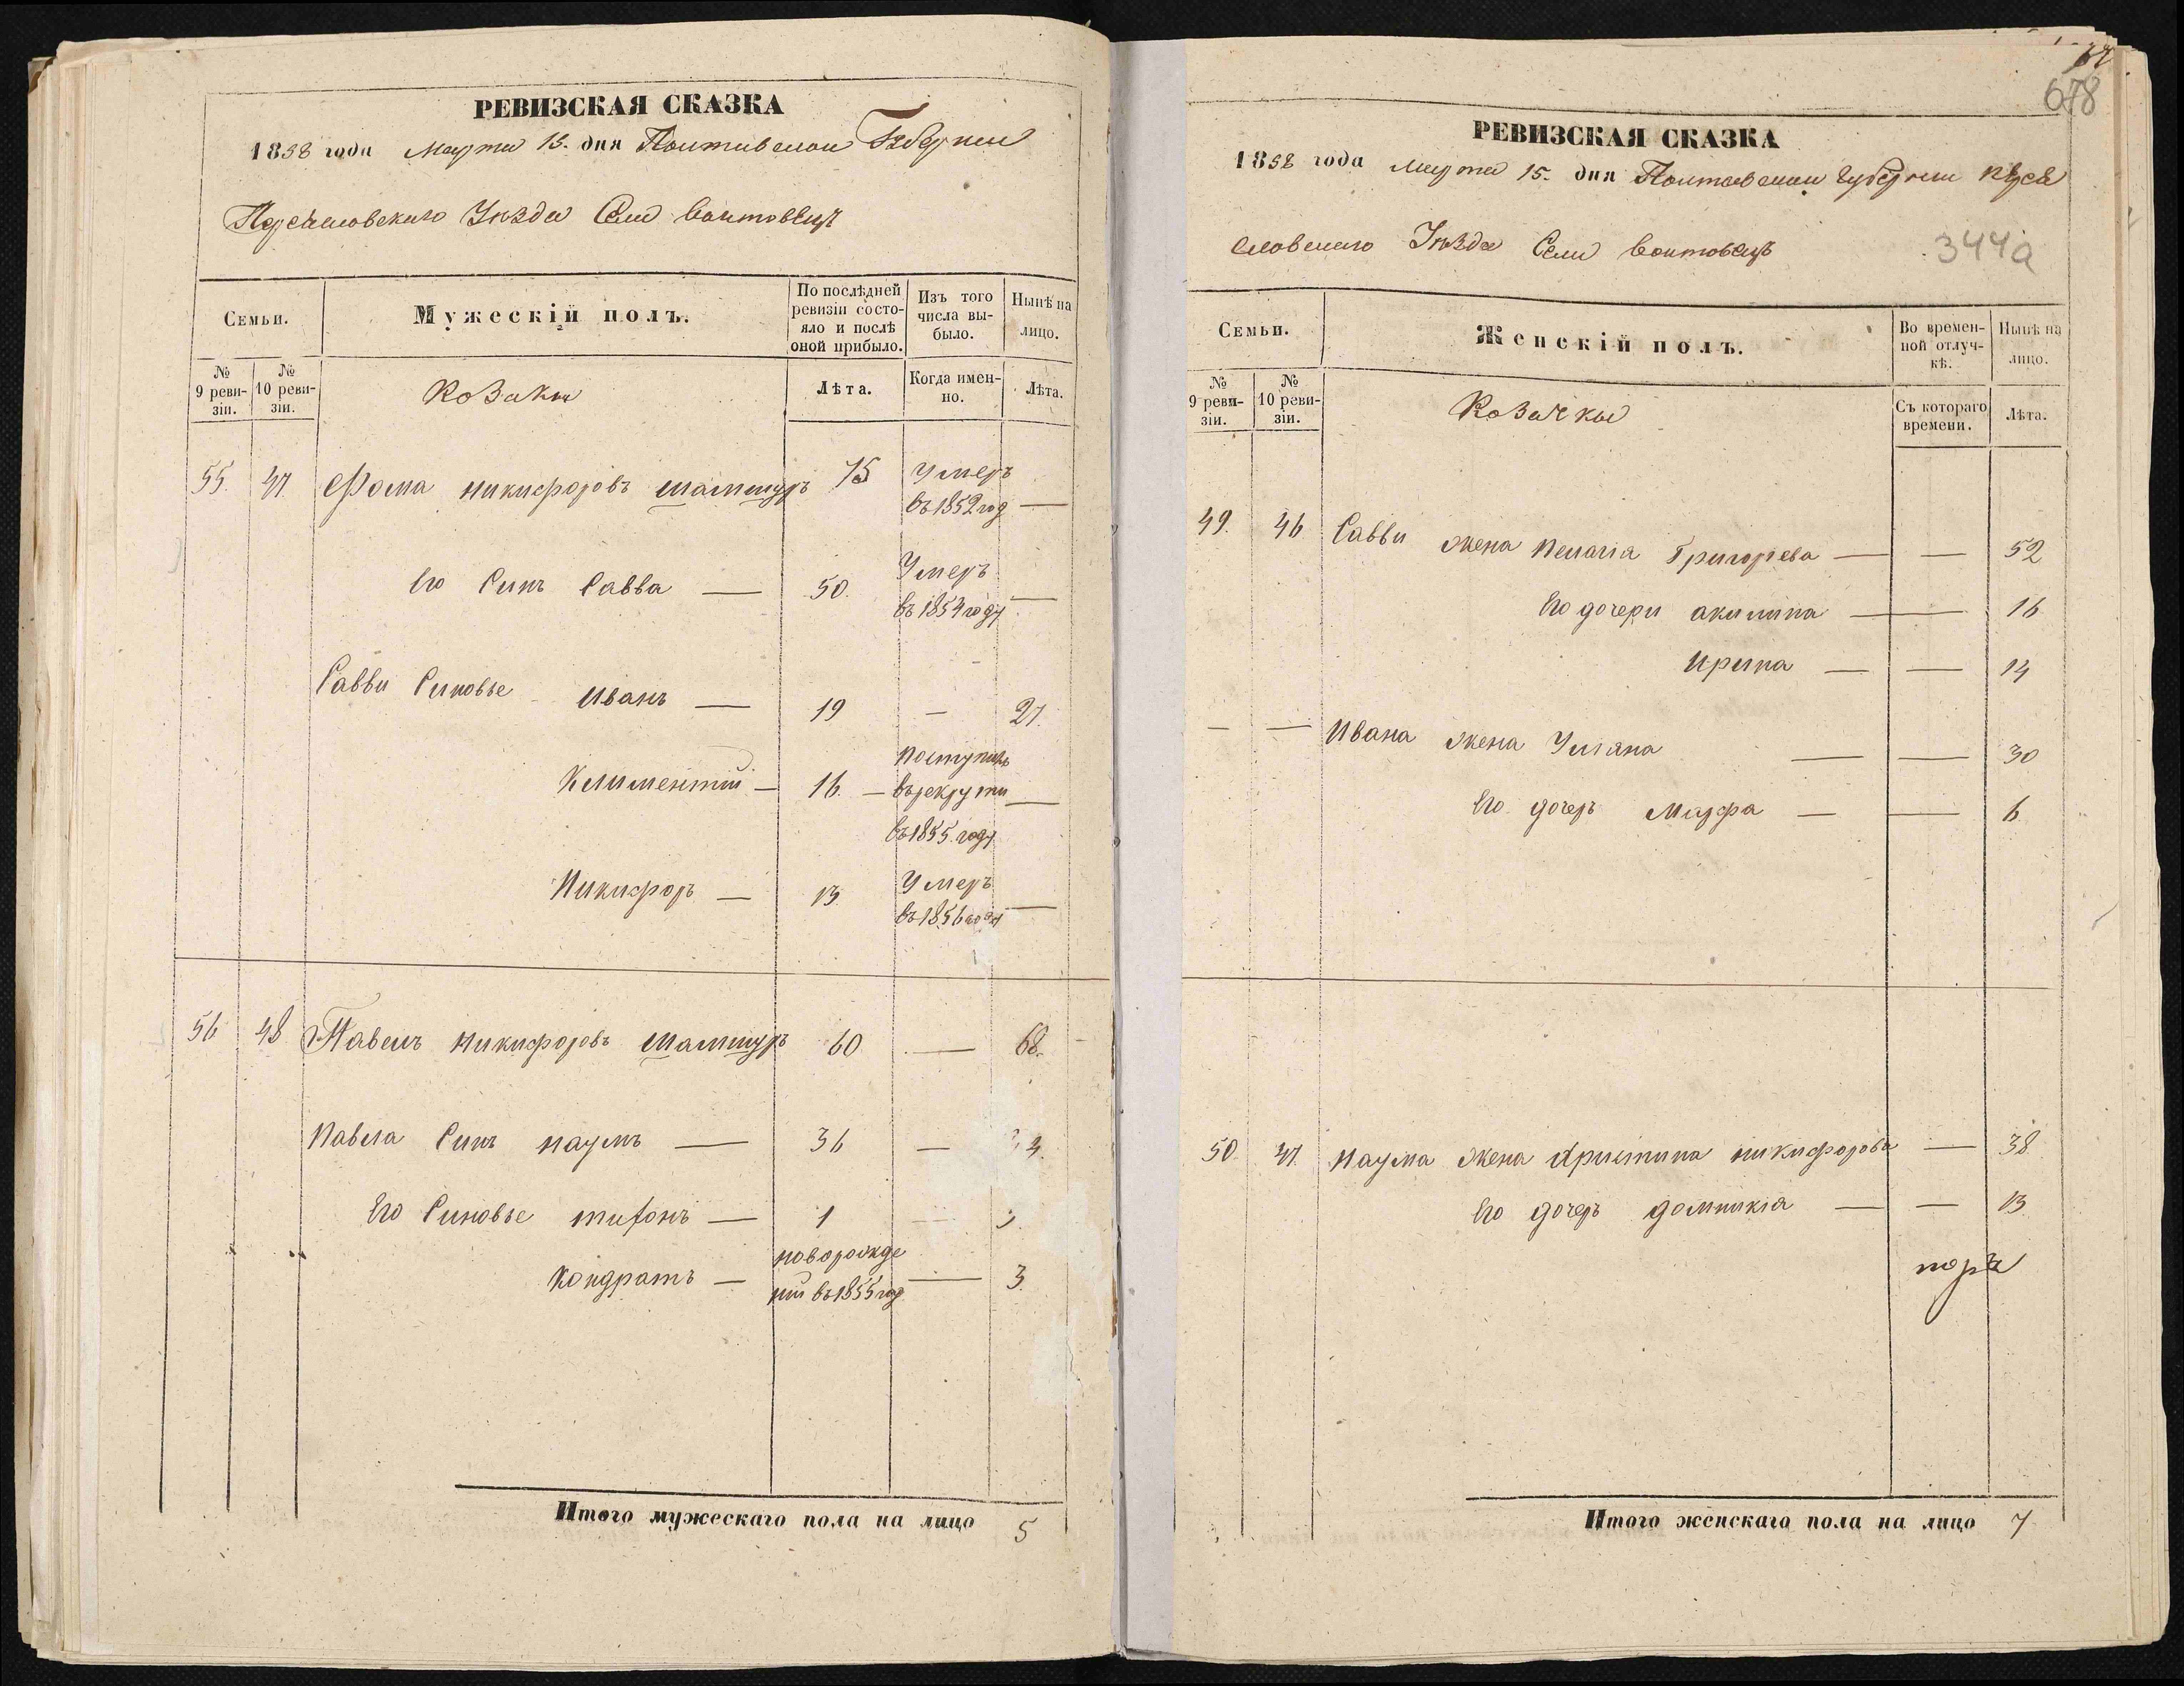 РЕВИЗСКАЯ СКАЗКА
1858 года Марта 15. дня Полтавской Губернии
Переяславского Уезда Села Войтовець
Семьи.
Мужескій полъ.
По послѣдней ревизіи состояло и послѣ оной прибыло.
Изъ того числа выбыло.
Нынѣ на лицо.
№ 9 ревизіи.
№ 10 ревизіи.
Козаки
Лѣта.
Когда именно.
Лѣта.
55. 47. Фома Никифоровъ Шамшуръ 75 Умеръ
въ 1852 год —
Его Синъ Савва — 50. Умеръ
въ 1854 году —
Савви Синовье Иванъ — 19 — 27.
Климентий — 16. — Поступилъ
въ рекрути —
въ 1855 году
Никифоръ — 13 Умеръ
въ 1856 году —
56 48 Павелъ Никифоровъ Шамшуръ 60 — 68.
Павла Синъ Наумъ — 36 — 4.
Его Синовье Тихонъ — 1 —
Кондратъ — новорожде
ний въ 1855 год — 3.
Итого мужескаго пола на лицо 5
67
678
РЕВИЗСКАЯ СКАЗКА
1858 года Марта 15. дня Полтавской Губернии Перея
словского Уезда Села Войтовець
344а
Семьи.
Женскій полъ.
Во временной отлучкѣ.
Нынѣ на лицо.
№ 9 ревизіи.
№ 10 ревизіи.
Козачки
Съ котораго времени.
Лѣта.
49. 46 Савви жена Пелагія Григорьева — — 52
Его дочери Акилина — — 16
Ирина — — 14
— — Ивана жена Уліяна — — 30
Его дочерь Марфа — — 6
50. 47. Наума жена Христина Никифорова — 38
Его дочерь Домникія — — 13
Итого женскаго пола на лицо 7